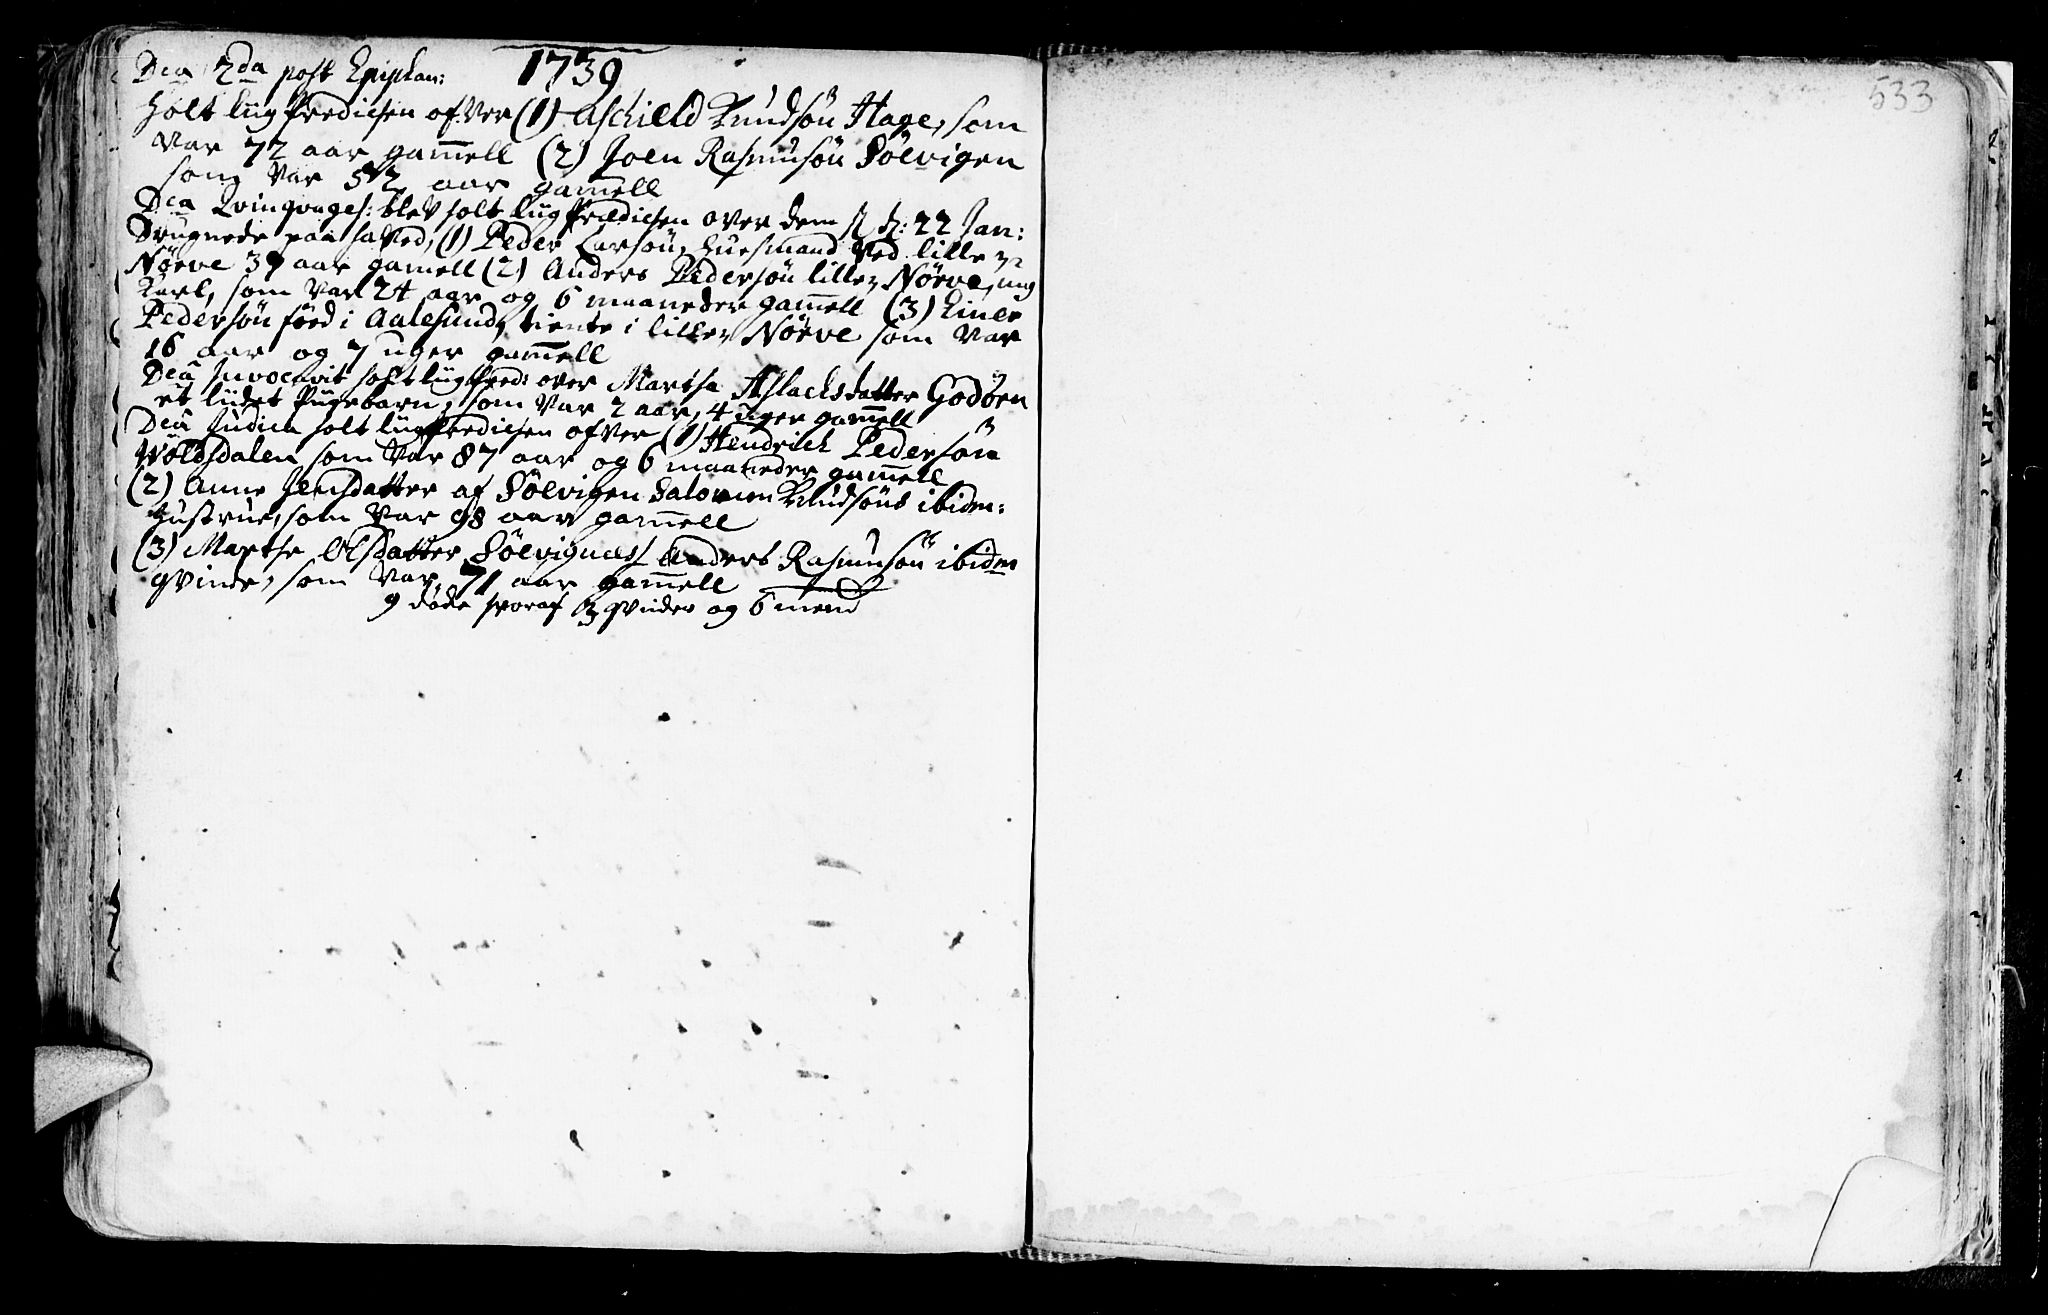 1739
Dca 2da post Epiphan:
holt liig prædichen ofver (1) Aschield Knudsøn Hage, som
var 72 aar gamell (2) Joen Rasmusøn Sølevigen
som var 52 aar gamell
Dca Qvinqvages: blev holt liig Prædichen over dem d: 22 Jan:
Drugnede paa haved, (1) Peder Larsøn, huusmand ved lille
Nørve 39 aar gamell (2) Anders Pedersøn lille Nørve, ung
karl, som var 24 aar og 6 maaneder gamell (3) Einer
Pedersøn föed i Aalesund, tiente i lille Nørve som var
16 aar og 7 uger gamell
Dca Invocavit holt liig Pred: over Martha Aslachsdatter Godøen
et lidet Pigebarn, som var 2 aar, 4 uger gamell
Dca Judica holt liigprædichen ofver (1) Hendrich Pedersøn
Woldsdalen som var 87 aar og 6 maaneder gamell
(2) Anne Jensdatter af Sølevigen Salomon Knudsøns ibidm:
hustrue, som var 98 aar gamell
(3) Marthe Olsdatter Sølevignæss Anders Rasmusøn ibidm
qvinde, som var 71 aar gamell
9 døde hvoraf 3 qvinder og 6 mend
533